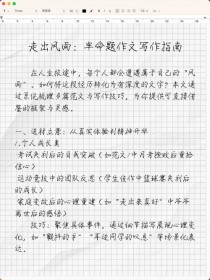 走出风雨：半命题作文写作指南
在人生旅途中，每个人都会遭遇属于自己的“风
雨”。如何将这段经历转化为有深度的文字？本文通
过系统梳理多篇范文与写作技巧，为你提供可直接借
鉴的框架与灵感。
一、选材立意：从真实体验到精神升华
1.个人成长类
考试失利后的自我突破（如范文1中月考挫败后重拾
信心）
运动竞技中的团队反思（学生佳作中篮球赛失利后
的成长）
家庭变故后的心理重建（如“走出来真好”中爷爷
离世后的感悟）
技巧：聚焦具体事件，通过细节描写展现心理变
化，如“颤抖的手”“耳边同学的叹息”等场景化表
达。